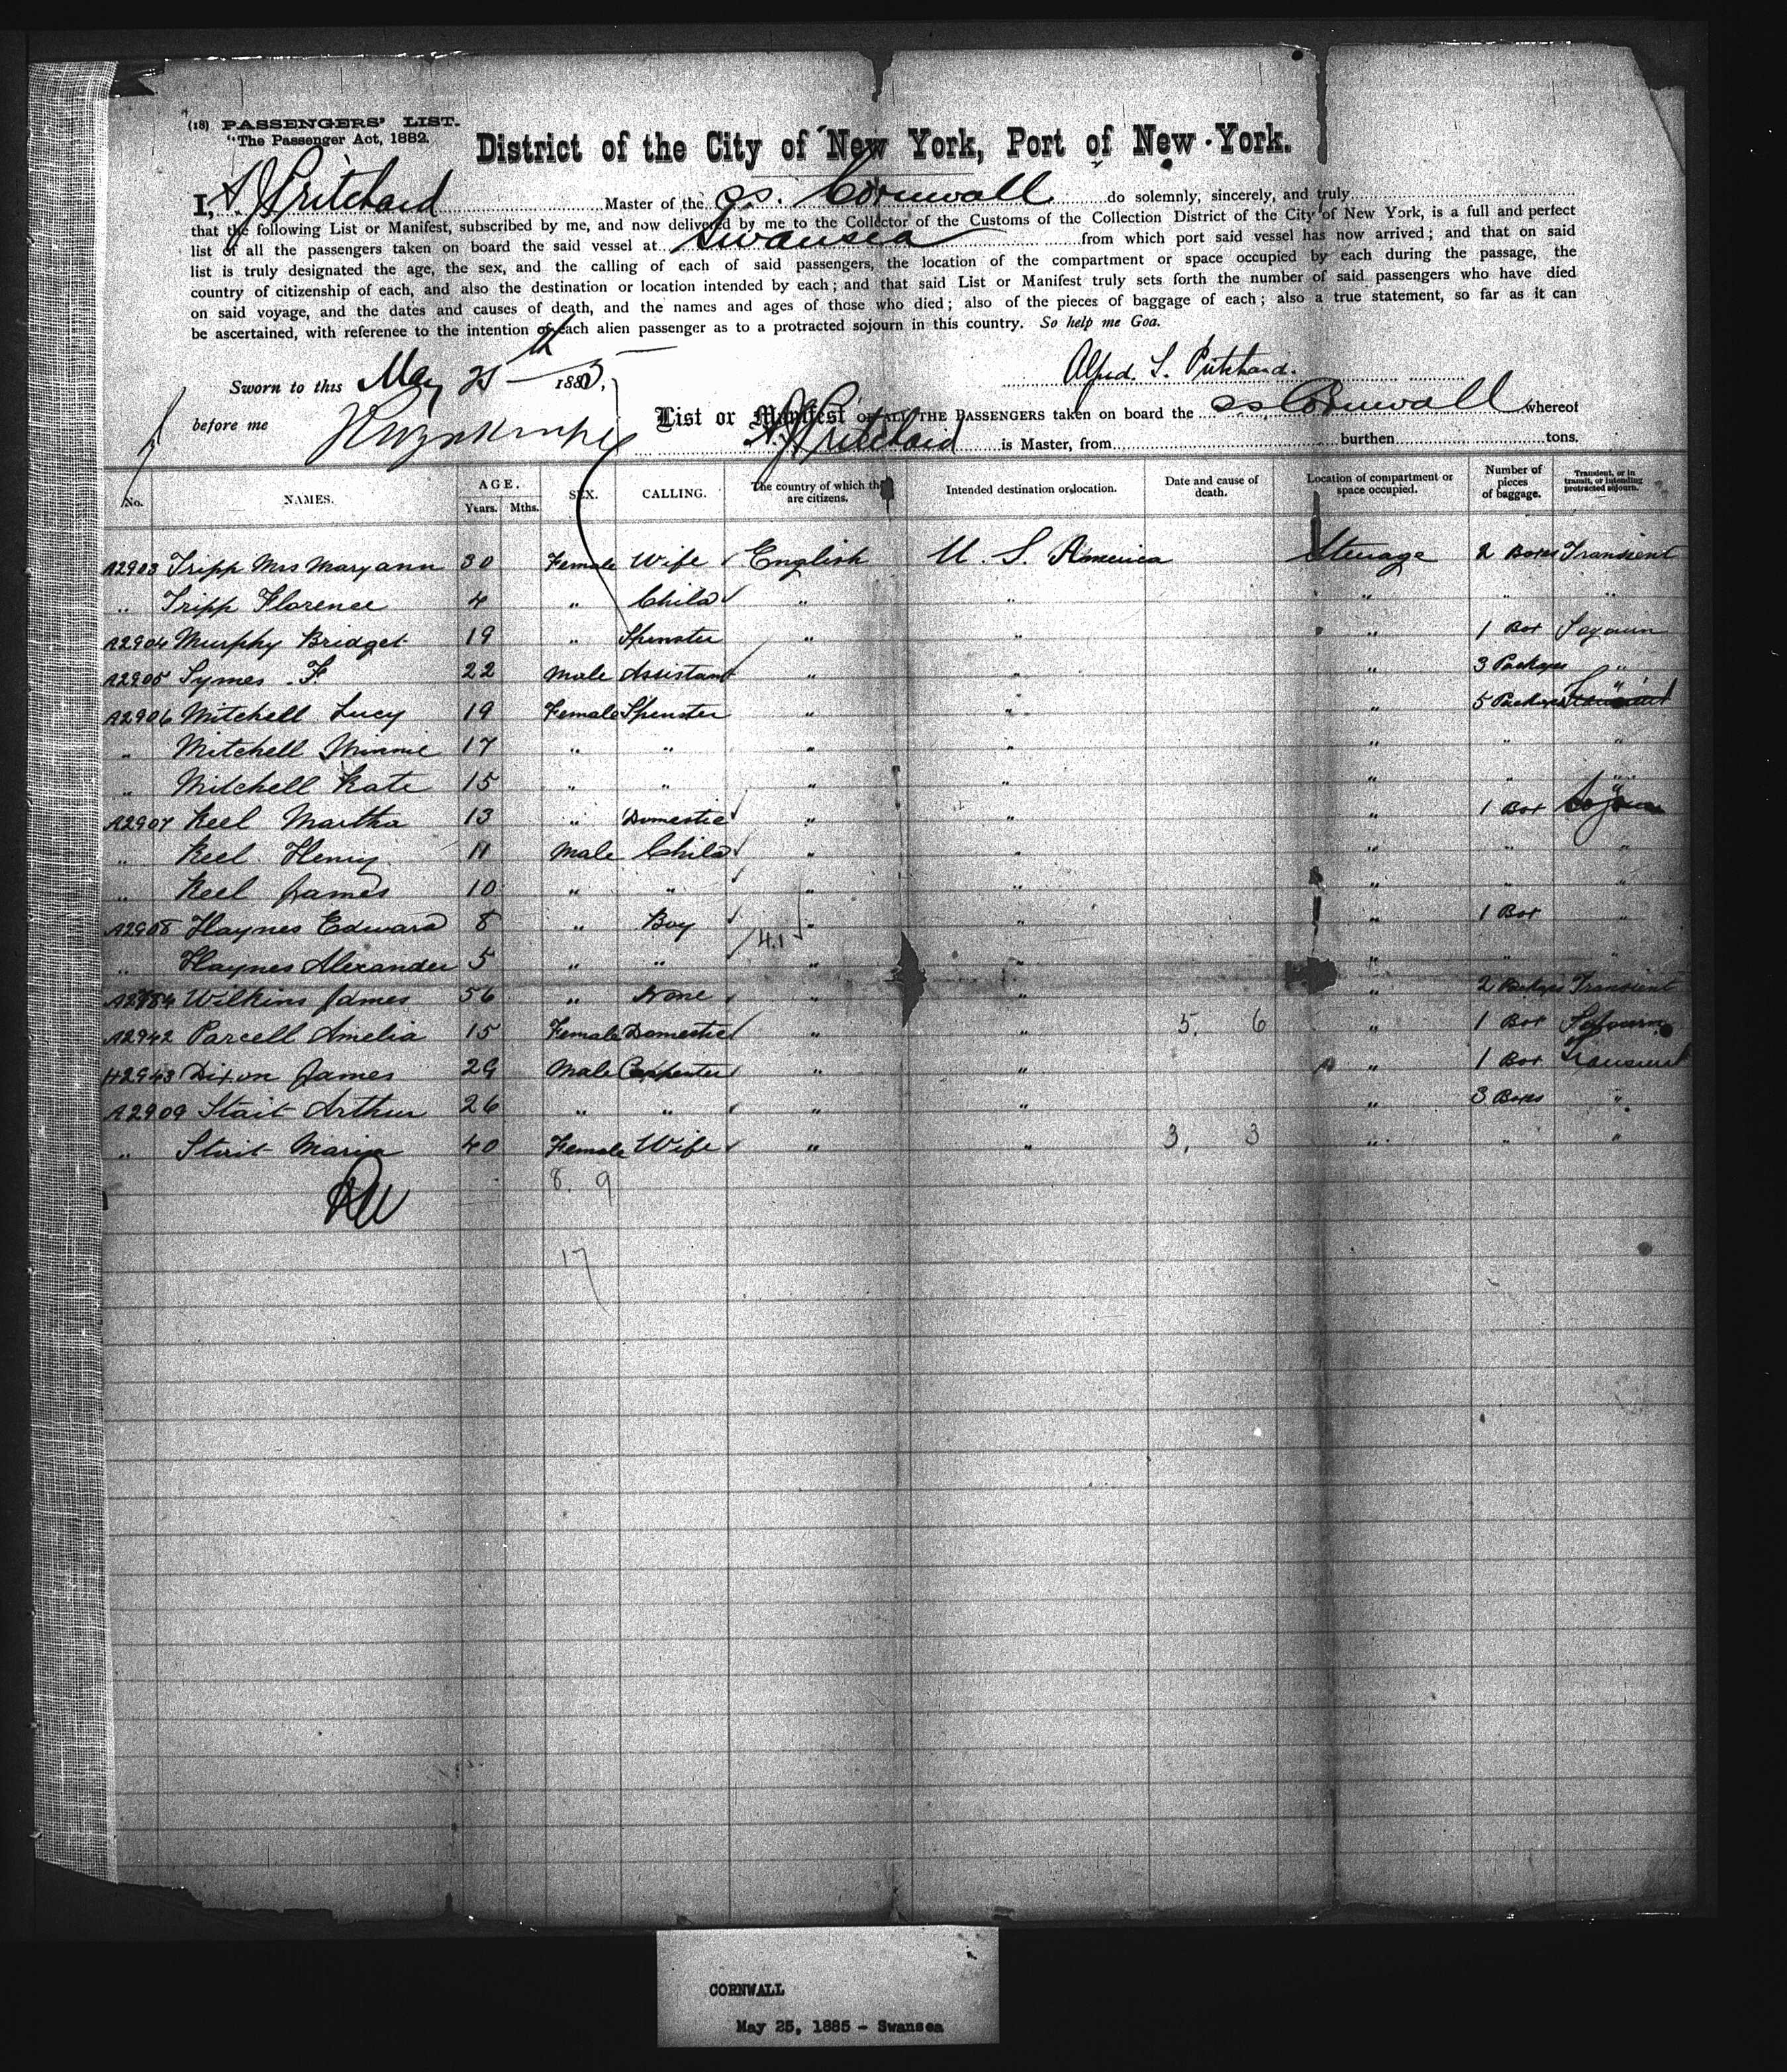 (18) PASSENGERS' LIST.
"The Passenger Act, 1882.
District of the City of New York, Port of New York.
I, A J Pritchard Master of the s.s. Cornwall do solemnly, sincerely, and truly
that the following List or Manifest, subscribed by me, and now delivered by me to the Collector of the Customs of the Collection District of the City of New York, is a full and perfect
list of all the passengers taken on board the said vessel at Swansea from which port said vessel has now arrived; and that on said
list is truly designated the age, the sex, and the calling of each of said passengers, the location of the compartment or space occupied by each during the passage, the
country of citizenship of each, and also the destination or location intended by each; and that said List or Manifest truly sets forth the number of said passengers who have died
on said voyage, and the dates and causes of death, and the names and ages of those who died; also of the pieces of baggage of each; also a true statement, so far as it can
be ascertained, with reference to the intention of each alien passenger as to a protracted sojourn in this country. So help me Goa.
Sworn to this May 25th 1885, Alfred. J. Pritchard.
before me
List or Manifest OF ALL THE PASSENGERS taken on board the ss Cornwall whereof
A. J Pritchard is Master, from burthen tons.
No. NAMES. AGE. Years. Mths. SEX. CALLING. The country of which they are citizens. Intended destination or location. Date and cause of death. Location of compartment or space occupied. Number of pieces of baggage. Transient, or in transit, or intending protracted sojourn.
A2903 Tripp Mrs Maryann 30 Female Wife English U. S. America Steerage 2 Boxes Transient
" Tripp Florence 4 " Child " " " " "
A2904 Murphy Bridget 19 " Spinster " " " 1 Box Sojourn
A2905 Symes F. 22 Male Assistant " " " 3 Packages "
A2906 Mitchell Lucy 19 Female Spinster " " " 5 Packages Transient "
" Mitchell Minnie 17 " " " " " " "
" Mitchell Kate 15 " " " " " " "
A2907 Keel Martha 13 " Domestic " " " 1 Box Sojourn "
" Keel Henry 11 Male Child " " " " "
" Keel James 10 " " " " " " "
A2908 Haynes Edward 8 " Boy 41 " " " 1 Box "
" Haynes Alexander 5 " " " " " " "
A2984 Wilkins James 56 " None " " " 2 Packages Transient
A2942 Parcell Amelia 15 Female Domestic " " 5. 6 " 1 Box Sojourn
A2943 Dixon James 29 Male Carpenter " " " 1 Box Transient
A2909 Stait Arthur 26 " " " " " 3 Boxes "
" Stait Maria 40 Female Wife " " 3. 3 " " "
8. 9
17
CORNWALL
May 25, 1885 - Swansea